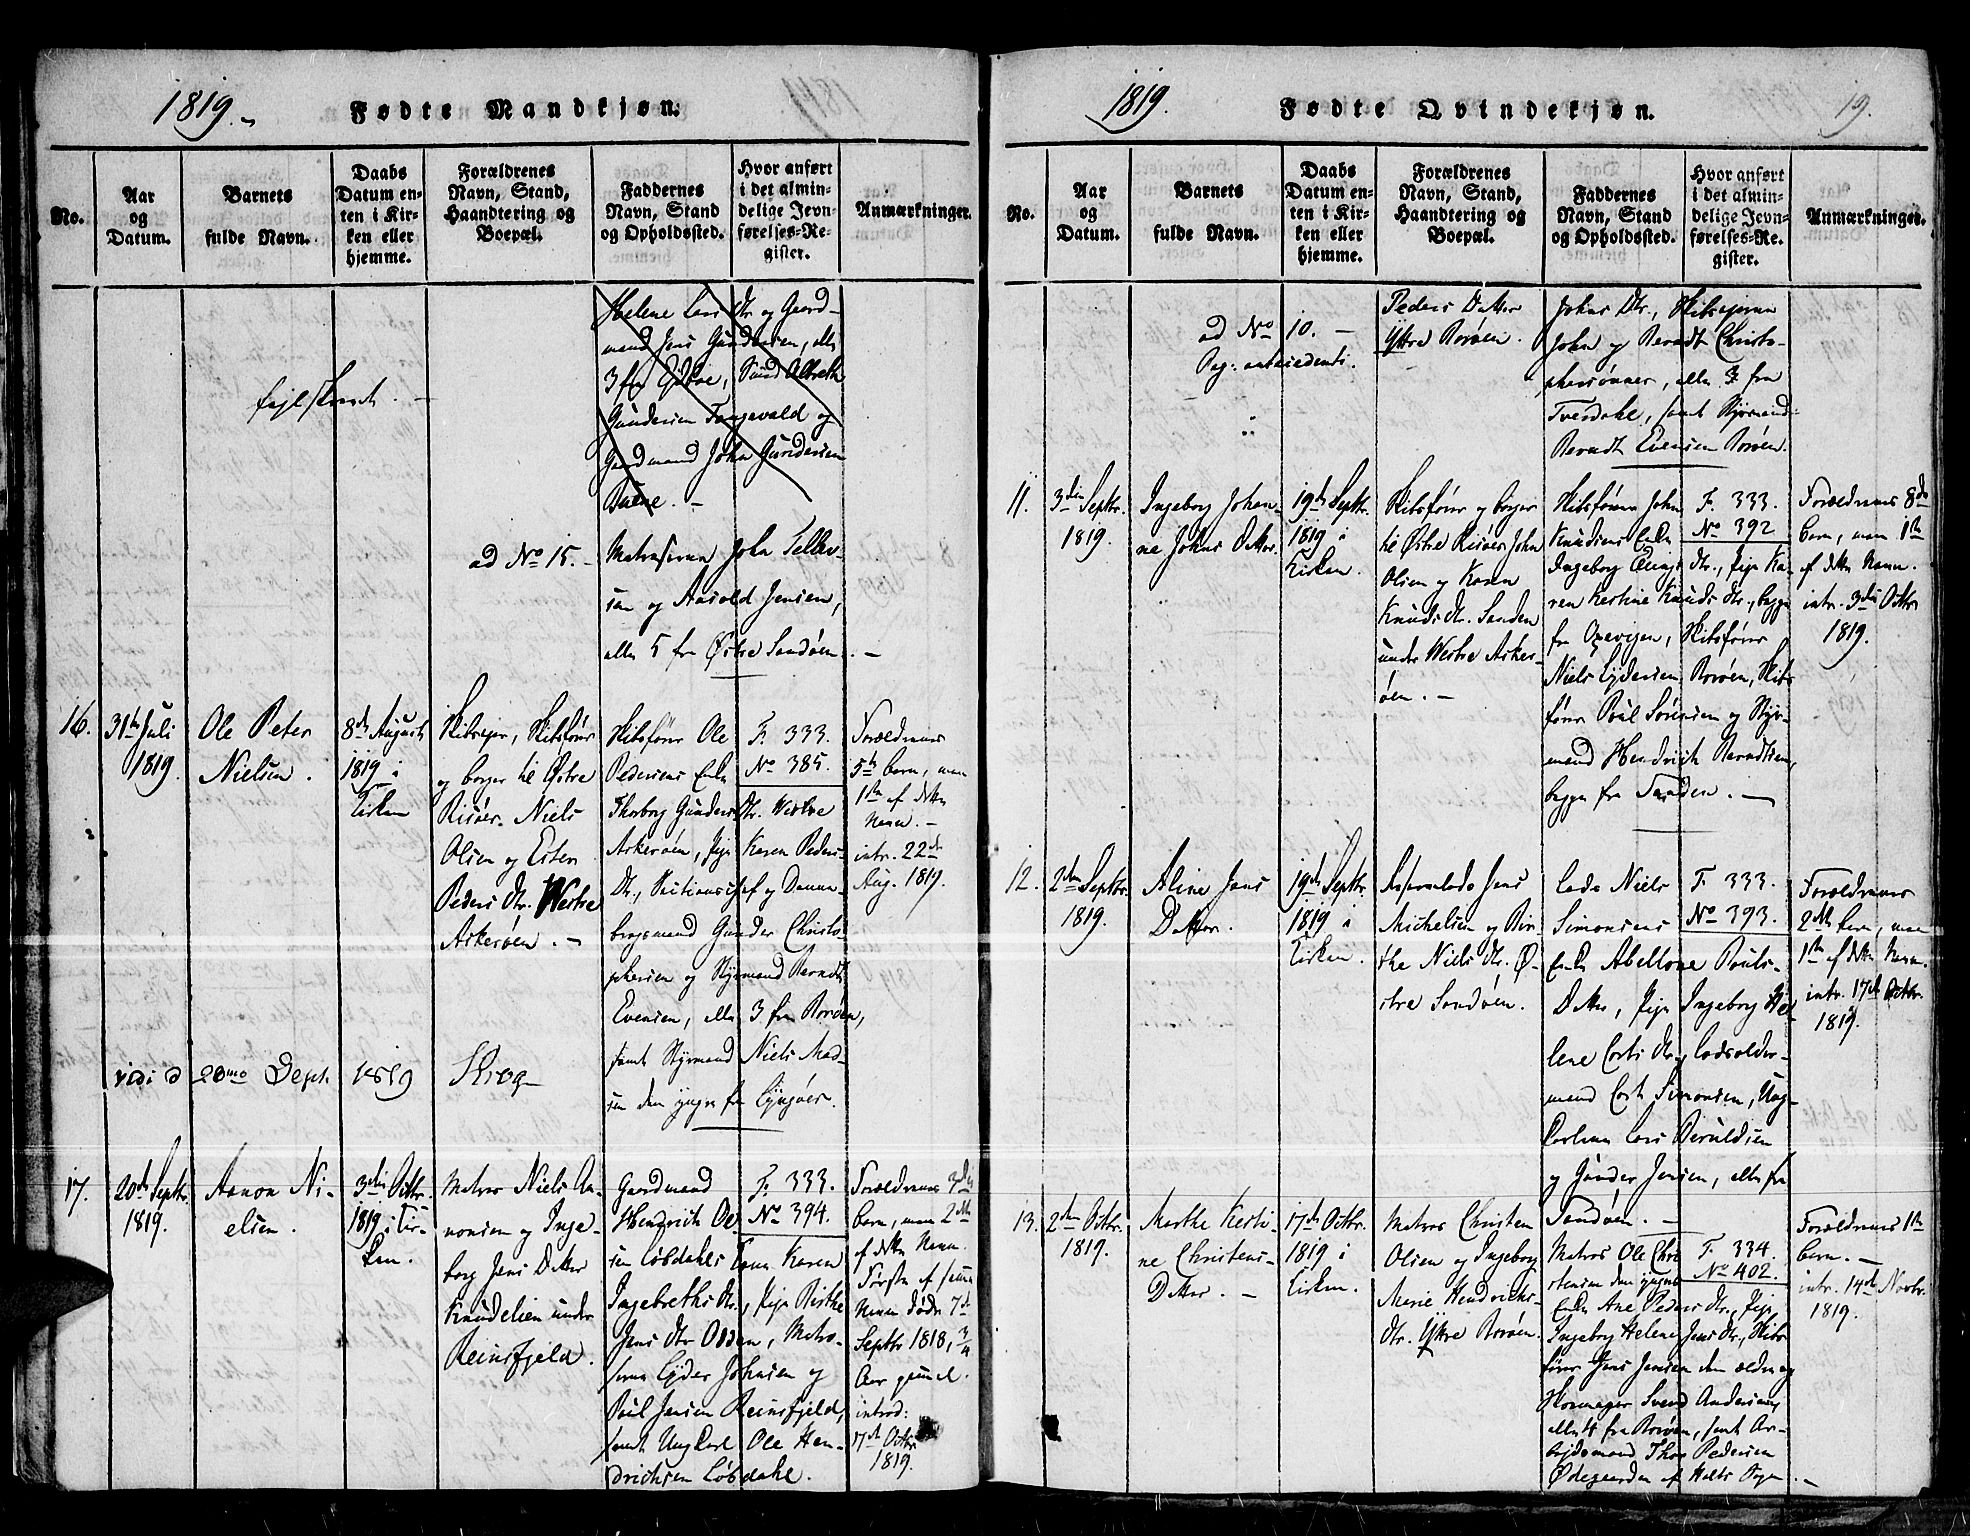 1819.
Fødte Mandkjøn.
No.
Aar
og
Datum.
Barnets
fulde Navn.
Daabs
Datum en-
ten i Kir-
ken eller
hjemme.
Forældrenes
Navn, Stand,
Haandtering og
Boepæl.
Faddernes
Navn, Stand
og Opholdssted.
Hvor anført
i det almin-
delige Jevn-
førelses-Re-
gister.
Anmærkninger.
Helene Lars Dtr. og Gaard-
mand Jens Gundersen, alle
3 fra
Gundersen Tangevald og
Gaardmand John Gundersen
ad No 15. -
Matroserne John Tellev-
sen og Aasold Jensen,
alle 5 fra Østre Sandøen. -
16.
31te Juli
1819.
Ole Peter
Nielsen.
8de August
1819 i
Kirken
Skibseier, Skibsfører
og borger til Østre
Risøer Niels
Olsen og Ester
Peders Dtr. Westre
Askerøen. -
Skibsfører Ole
Pedersens Enke
Thorborg Gunders Dtr. Westre
Askerøen, Pige Karen Peders
Dtr., og Danne-
brogsmand Gunder Christo-
phersen og Styrmand Berndt
Evensen, alle 3 fra Borøen,
samt Styrmand Niels Mad-
sen den yngre fra Lyngøer.
F. 333.
No 385.
Forældrenes
5te barn, men
1ste af dette
Navn. -
intr. 22de
Aug. 1819.
vidi d 20mo Sept. 1819 Krog
17.
20de Septbr.
1819.
Aanon Ni-
elsen.
3die Octbr.
1819 i Kir-
ken.
Matros Niels Aa-
nonsen og Inge-
borg Jens Datter
Knudelien under
Reinsfjeld.
Gaardmand
Hendrich Ol-
sen Løbdahls Kone Karen
Ingebreths Dtr., Pige Birthe
Jens Dtr Odden, Matro-
serne Lyder Johnsen og
Poul Jensen Reinsfjeld,
samt Ung Carl Ole Hen-
drichsen Løbdahl.
F. 333.
No 394.
Forældrenes 3die
barn, men 2det
af dette Navn.
Første af samme
Navn døde 7de
Septbr 1818, 3/4
Aar gammel.
introd:
17de Octbr.
1819.
1819.
Fødte Qvindekjøn.
19.
No.
Aar
og
Datum.
Barnets
fulde Navn.
Daabs
Datum en-
ten i Kir-
ken eller
hjemme.
Forældrenes
Navn, Stand,
Haandtering og
Boepæl.
Faddernes
Navn, Stand
og Opholdssted.
Hvor anført
i det almin-
delige Jevn-
førelses-Re-
gister.
Anmærkninger.
ad No 10. -
Pag: antecedenti.
Peders Datter
Yttre Borøen.
Johns Dtr., Skibseierne
John og Berndt Christo-
phersønner, alle 3 fra
Tverdahl, samt Styrmand
Berndt Evensen Borøen.
11.
3die Septbr.
1819.
Ingeborg Johan-
ne Johns Datter.
19de Septbr.
1819 i
Kirken.
Skibsfører og borger
til Østre Risøer John
Olsen og Karen
Knuds Dtr. Sanden
under Westre Asker-
øen. -
Skibsfører John
Knudsens Enke
Ingeborg Dtr., Pige Ka-
ren Kestine Knuds Dtr., begge
fra Skibsfører
Niels Lydersen Borøen, Skibs-
fører Poul Sørensen og Styr-
mand Hendrich Berndtsen,
begge fra Sanden. -
F. 333.
No 392
Forældrenes 8de
barn, men 1ste
af dette Navn.
intr. 3die Octbr
1819.
12.
2den Septbr.
1819.
Aline Jens
Datter.
19de Septbr.
1819 i
Kirken.
Jens
Michelsen og Bir-
the Niels Dtr. Ø-
stre Sandøen.
Lods Niels
Simonsens
Enke Abellone Pouls-
Datter, Pige Ingeborg He-
lene Corts Dtr., Lodsolder-
mand Cort Simonsen, Ung-
Carlene Lars Beruldsen
og Gunder Jensen, alle fra
Sandøen. -
F. 333.
No 393.
Forældrenes
2det barn, men
1ste af dette Navn.
intr. 17de Octbr.
1819.
13.
2den Octbr.
1819.
Marthe Kersti-
ne Christens
Datter. -
17de Octbr.
1819 i
Kirken.
Matros Christen
Olsen og Ingeborg
Marie Hendrichs
Dtr. Yttre Borøen.
Matros Ole Chri-
stensen den yngres
Enke Ane Peders Dtr., Pige
Ingeborg Helene Jens Dtr., Skibs-
fører Jens Jensen den ældre og
Svend Andersen,
alle 4 fra Borøen, samt Ar-
bejdsmand Thor Pedersen
Ødegaarden af Holts Sogn. -
F. 334.
No 402.
Forældrenes 1ste
barn. -
intr. 14de Novbr.
1819.